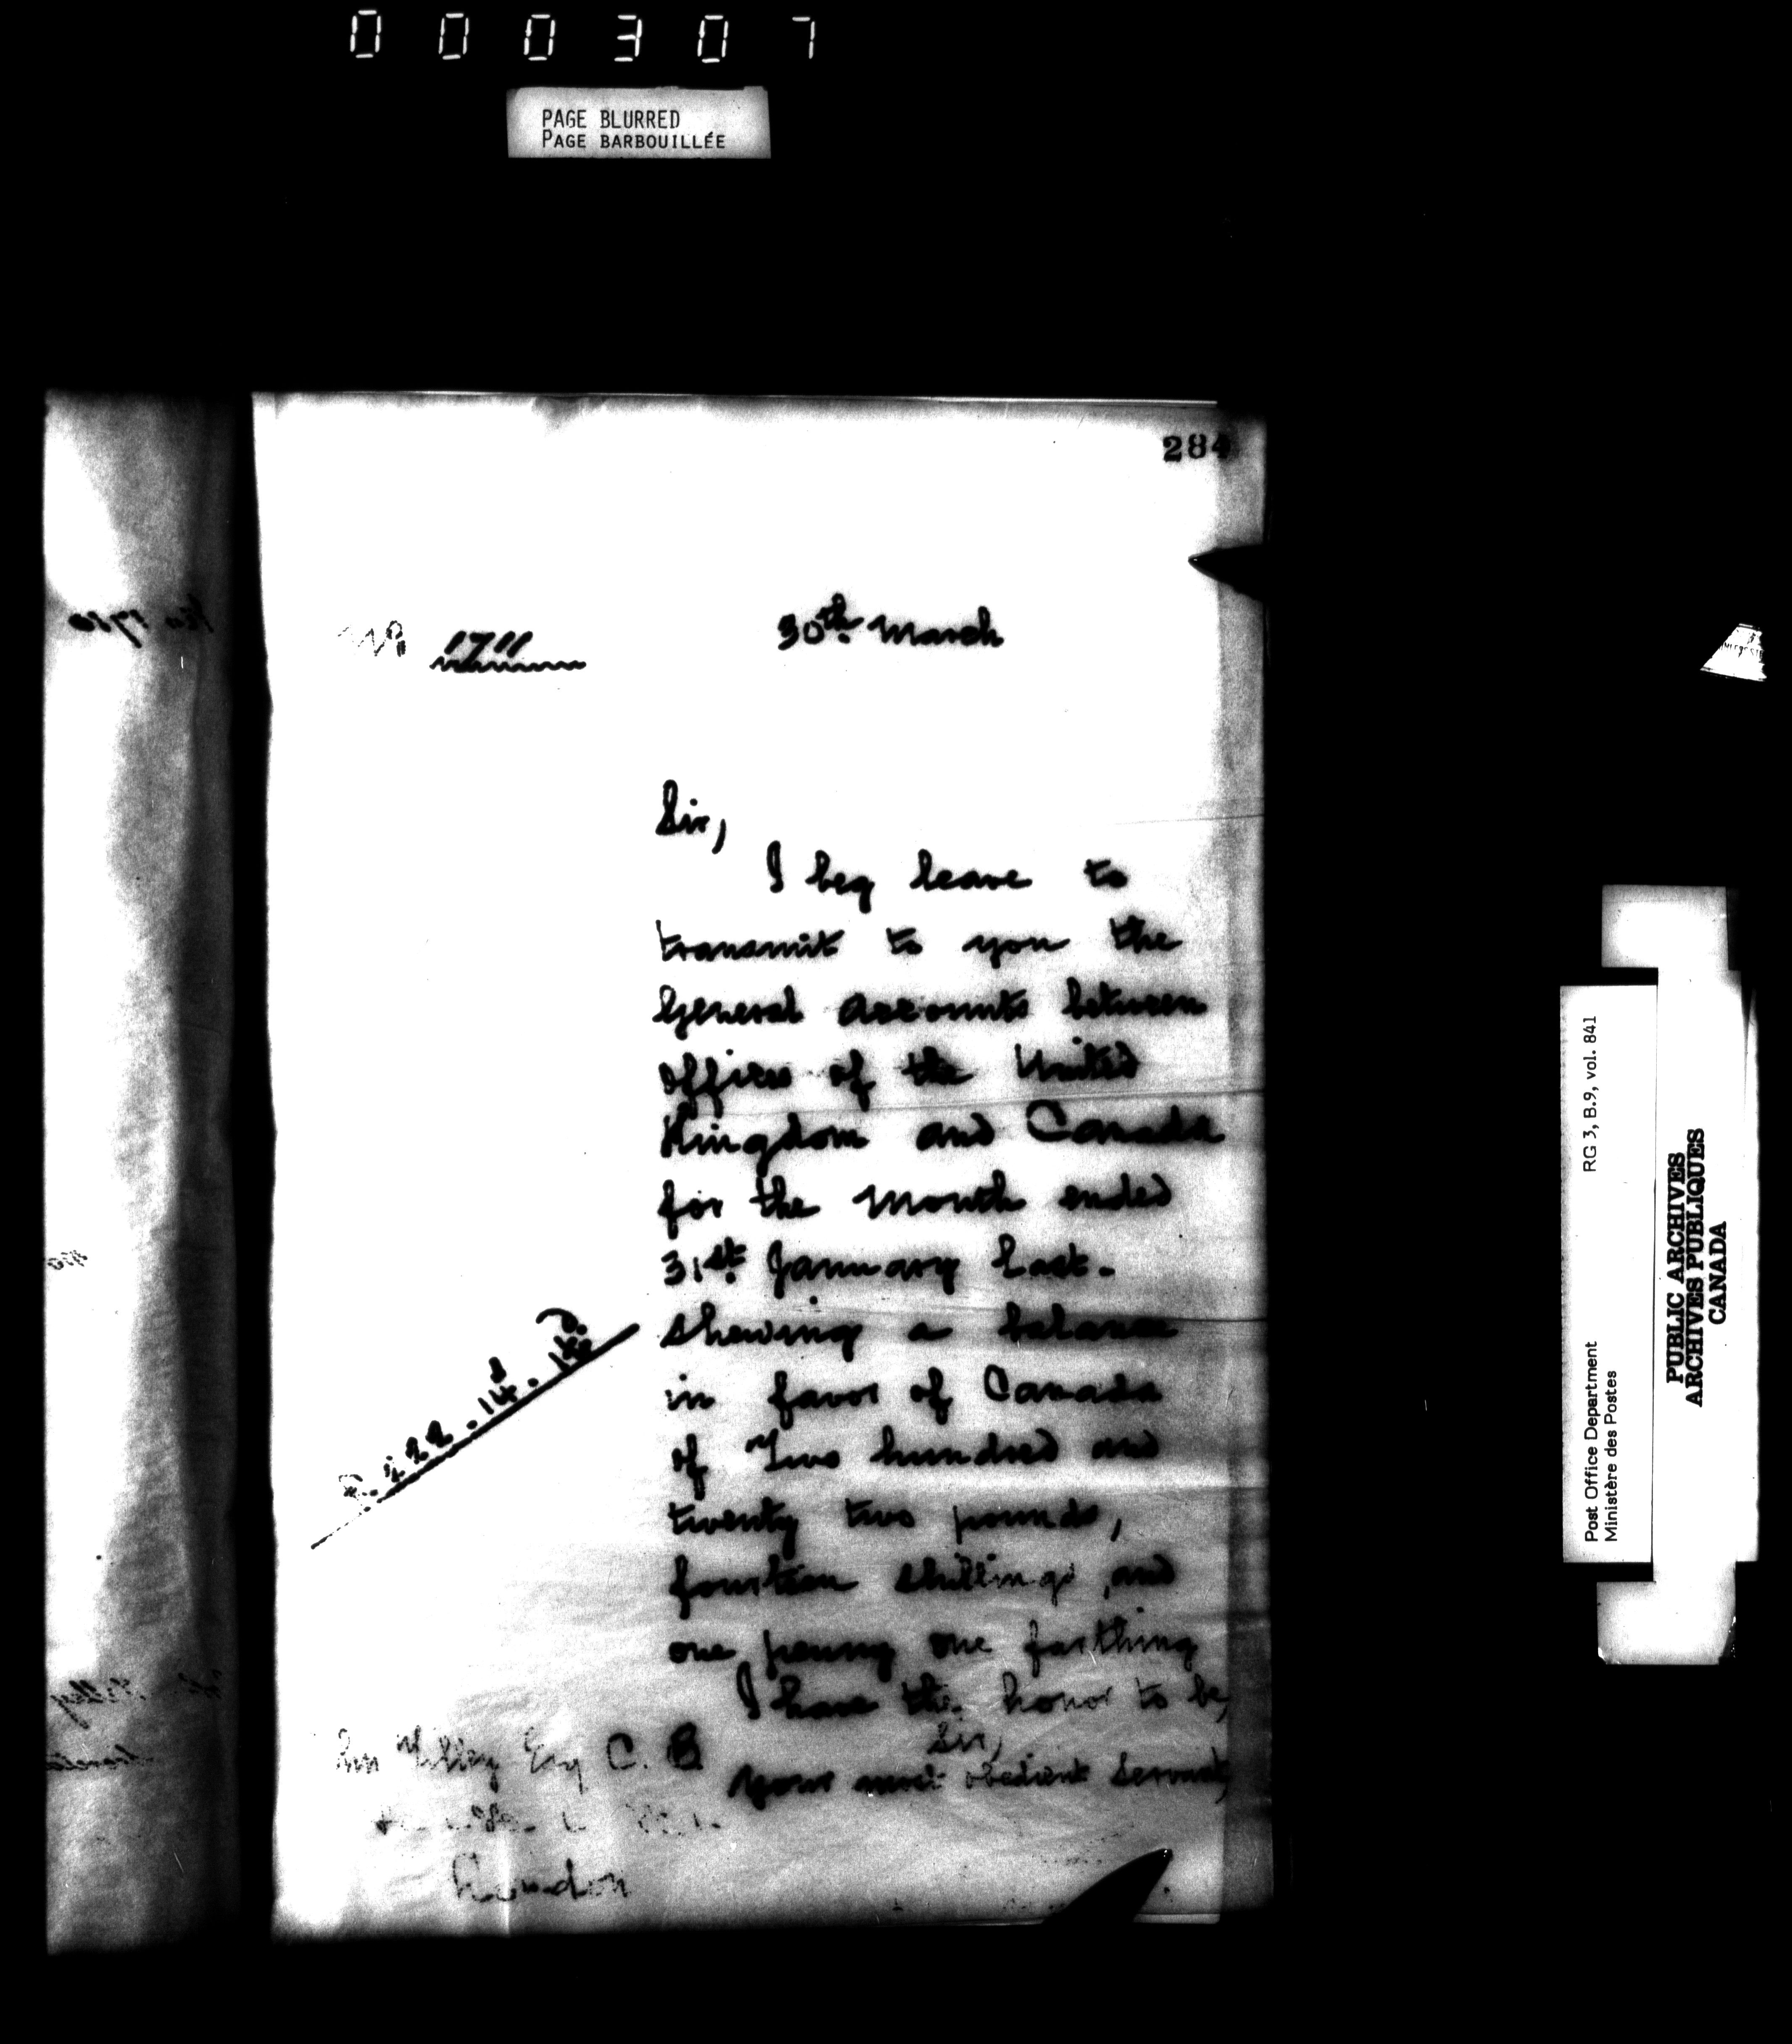 000307
PAGE BLURRED
PAGE BARBOUILLÉE
284
No 1711
30th March
Sir,
I beg leave to
transmit to you the
General Accounts between
offices of the United
Kingdom and Canada
for the Month ended
31st January last.
shewing a balance
in favor of Canada
of Two hundred and
twenty two pounds,
fourteen shillings, and
one penny one farthing
£.222.14.1¼
I have the honor to be,
Sir,
Your most obedient Servant,
Tilley Esq C. B
London
Post Office Department RG 3, B.9, vol. 841
Ministère des Postes
PUBLIC ARCHIVES
ARCHIVES PUBLIQUES
CANADA